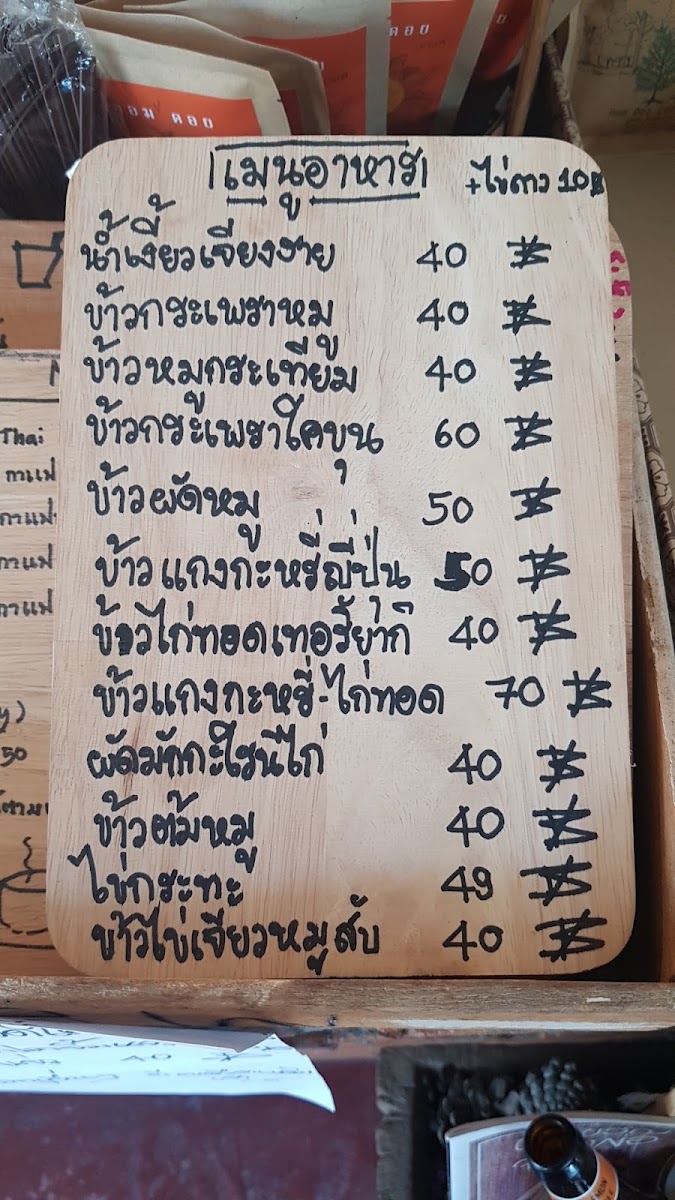 คอย
อม คอย
เมนูอาหาร
+ไข่ดาว 10฿
น้ำเงี้ยวเจียงราย 40 ฿
ข้าวกระเพราหมู 40 ฿
ข้าวหมูกระเทียม 40 ฿
ข้าวกระเพราใคขุน 60 ฿
ข้าวผัดหมู 50 ฿
ข้าวแกงกะหรี่ญี่ปุ่น 50 ฿
ข้าวไก่ทอดเทอริ้ยากิ 40 ฿
ข้าวแกงกะหรี่-ไก่ทอด 70 ฿
ผัดมักกะโรนีไก่ 40 ฿
ข้าวต้มหมู 40 ฿
ไข่กระทะ 49 ฿
ข้าวไข่เจียวหมูสับ 40 ฿
Thai
กาแฟ
กาแฟ
กาแฟ
กาแฟ
y)
50
40